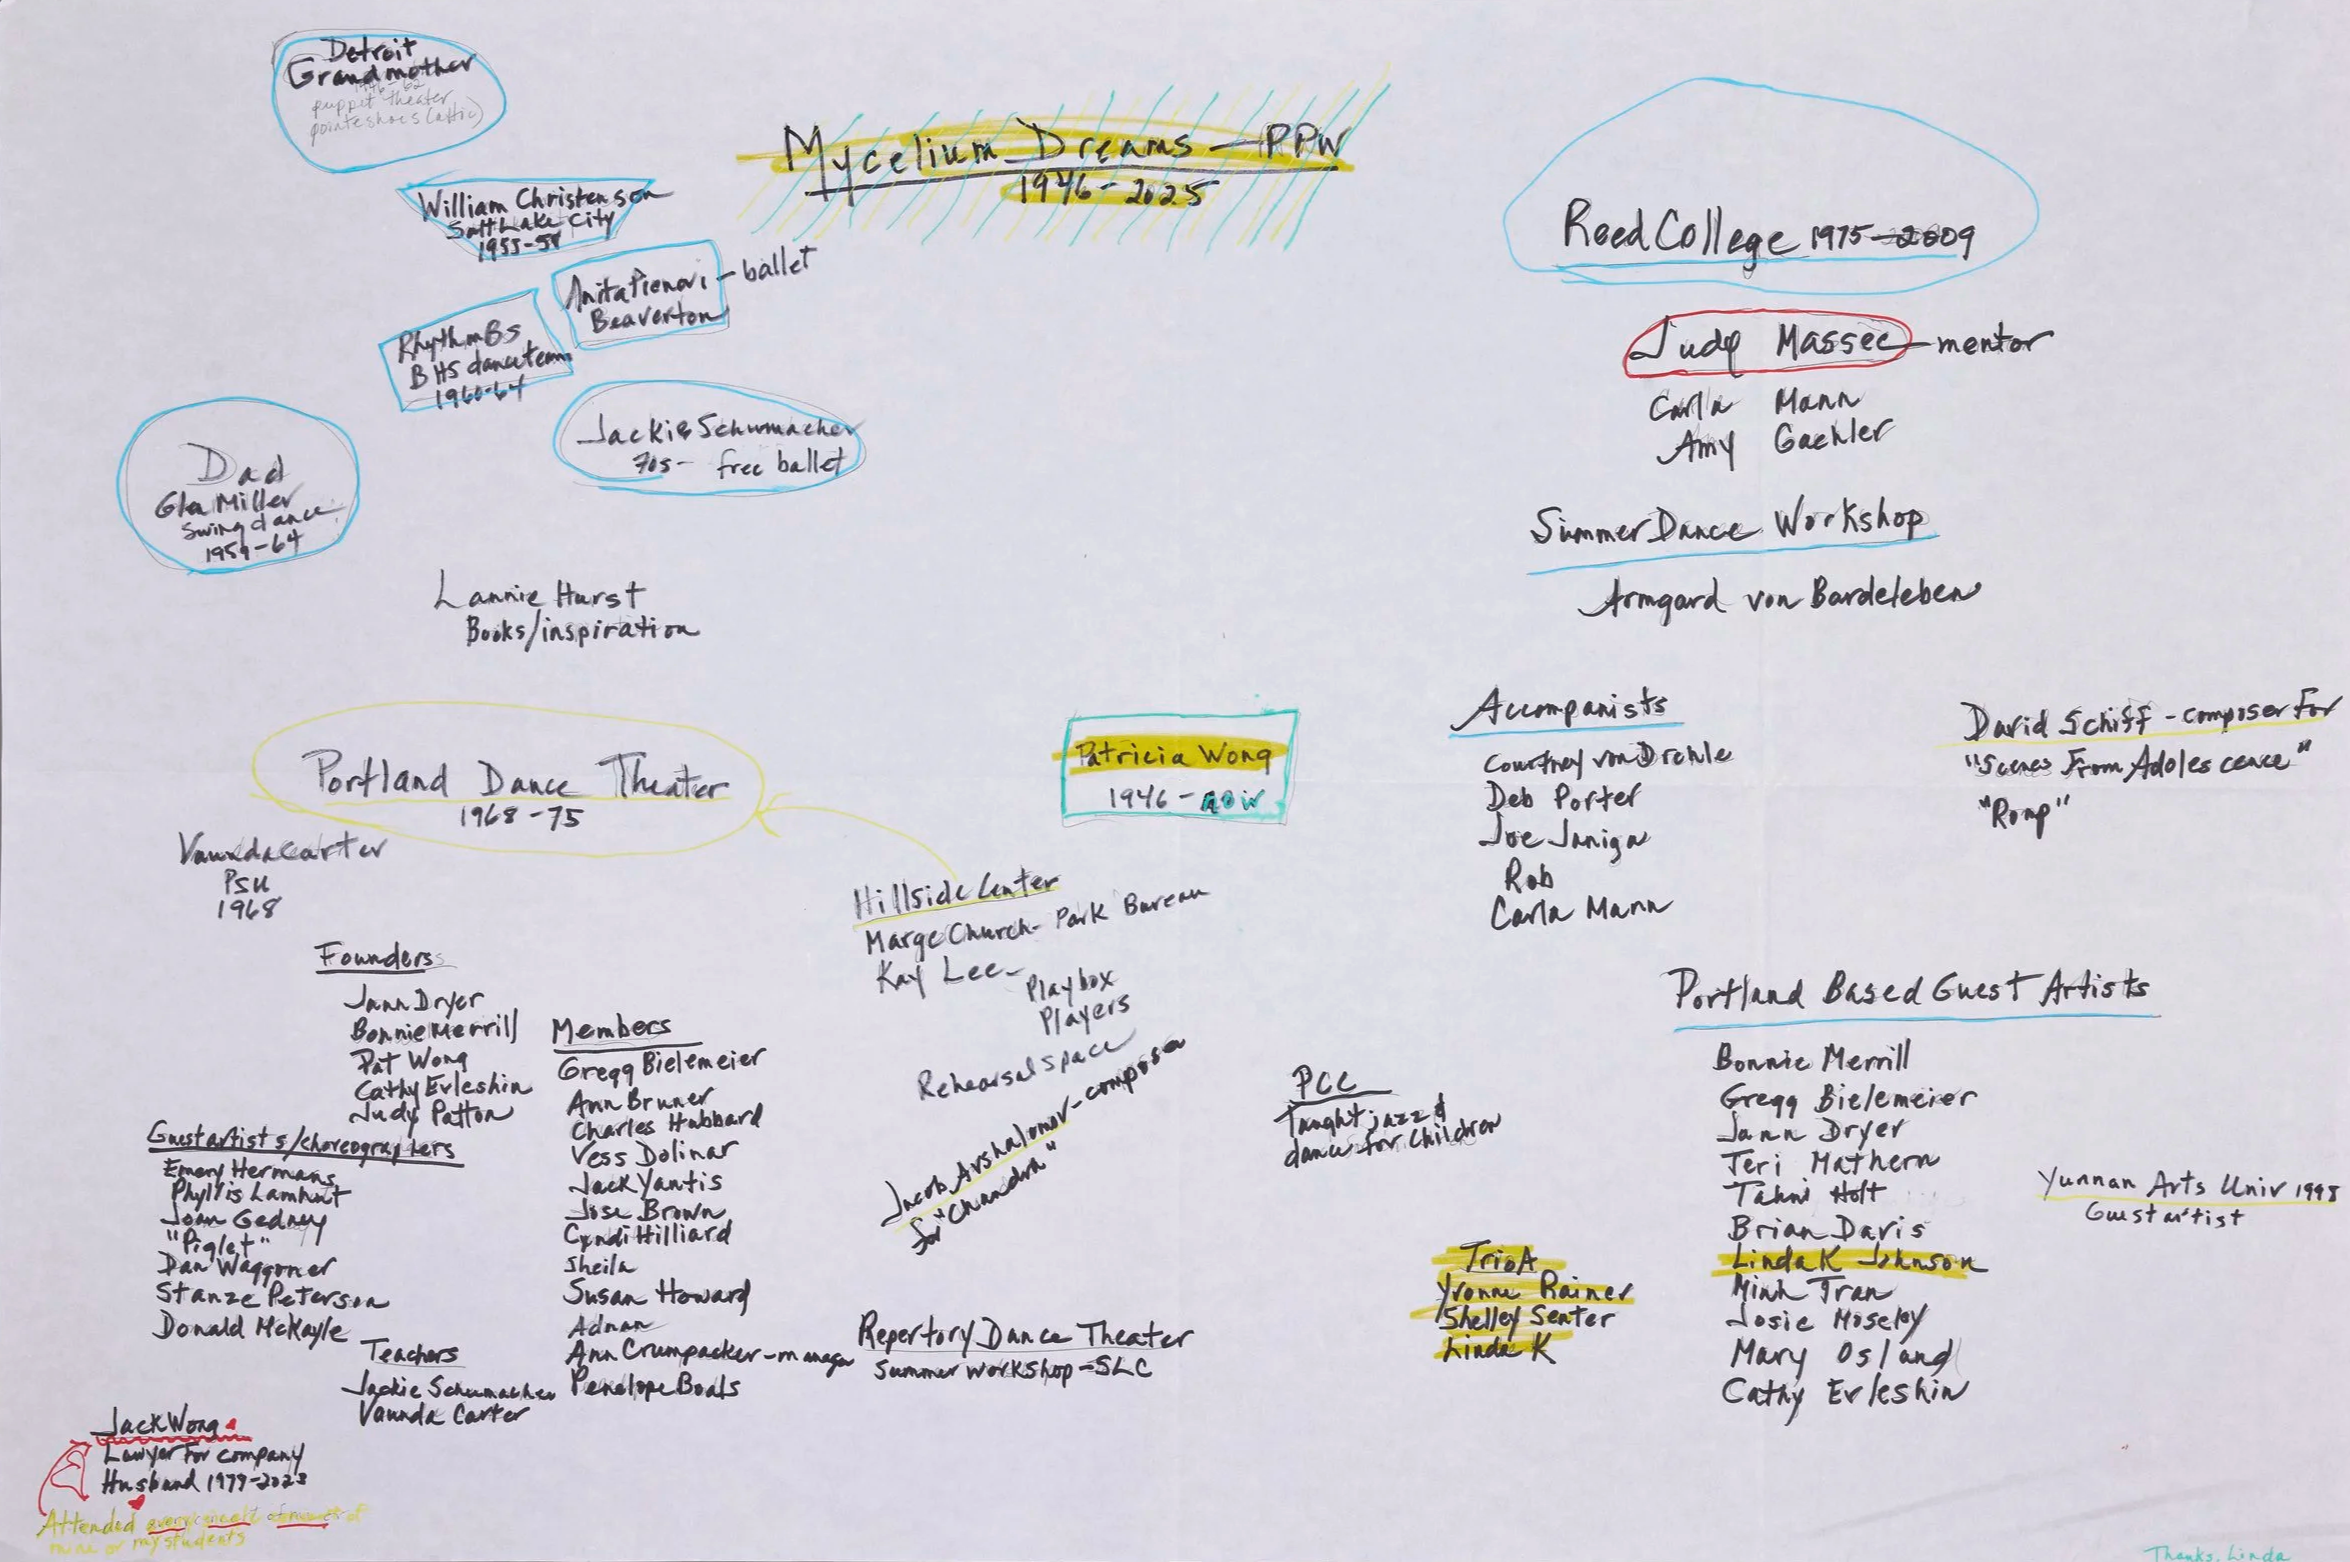 Mycelium Dreams — PPW
1946 - 2025
Detroit
Grandmother
1946-62
puppet theater
pointe shoes (attic)
William Christenson
Salt Lake City
1955-58
Anita Pienovi - ballet
Beaverton
RhythmBs
BHS dance team
1960-64
Jackie Schumacher
70s - free ballet
Dad
Glen Miller
Swing dance
1959-64
Lannie Hurst
Books/inspiration
Portland Dance Theater
1968 - 75
Vaunda Carter
PSU
1968
Founders
Jann Dryer
Bonnie Merrill
Pat Wong
Cathy Evleshin
Judy Patton
Guest artists/choreographers
Emery Hermans
Phyllis Lamhut
Joan Gedney
"Piglet"
Dan Waggoner
Stanze Peterson
Donald McKayle
Teachers
Jackie Schumacher
Vaunda Carter
Members
Gregg Bielemeier
Ann Bruner
Charles Hubbard
Vess Dolinar
Jack Yantis
Jose Brown
Cyndi Hilliard
Sheila
Susan Howard
Adnan
Ann Crumpacker - manager
Penelope Boals
Jack Wong
Lawyer For company
Husband 1979-2023
Attended every concert of mine or my students
Patricia Wong
1946 - now
Hillside Center
Marge Church - Park Bureau
Kay Lee -
Playbox
Players
Rehearsal space
Jacob Avshalomov - composer
for "Chandra"
Repertory Dance Theater
Summer workshop - SLC
PCC
Taught jazz &
dance for children
Reed College 1975-2009
Judy Massee - mentor
Carla Mann
Amy Gaehler
Summer Dance Workshop
Armgard von Bardeleben
Accompanists
Courtney von Drehle
Deb Porter
Joe Janiga
Rob
Carla Mann
David Schiff - composer For
"Scenes From Adolescence"
"Romp"
Portland Based Guest Artists
Bonnie Merrill
Gregg Bielemeier
Jann Dryer
Teri Mathern
Tahni Holt
Brian Davis
Linda K Johnson
Minh Tran
Josie Moseley
Mary Oslund
Cathy Evleshin
Yunnan Arts Univ 1995
Guest artist
Trio A
Yvonne Rainer
Shelley Senter
Linda K
Thanks, Linda